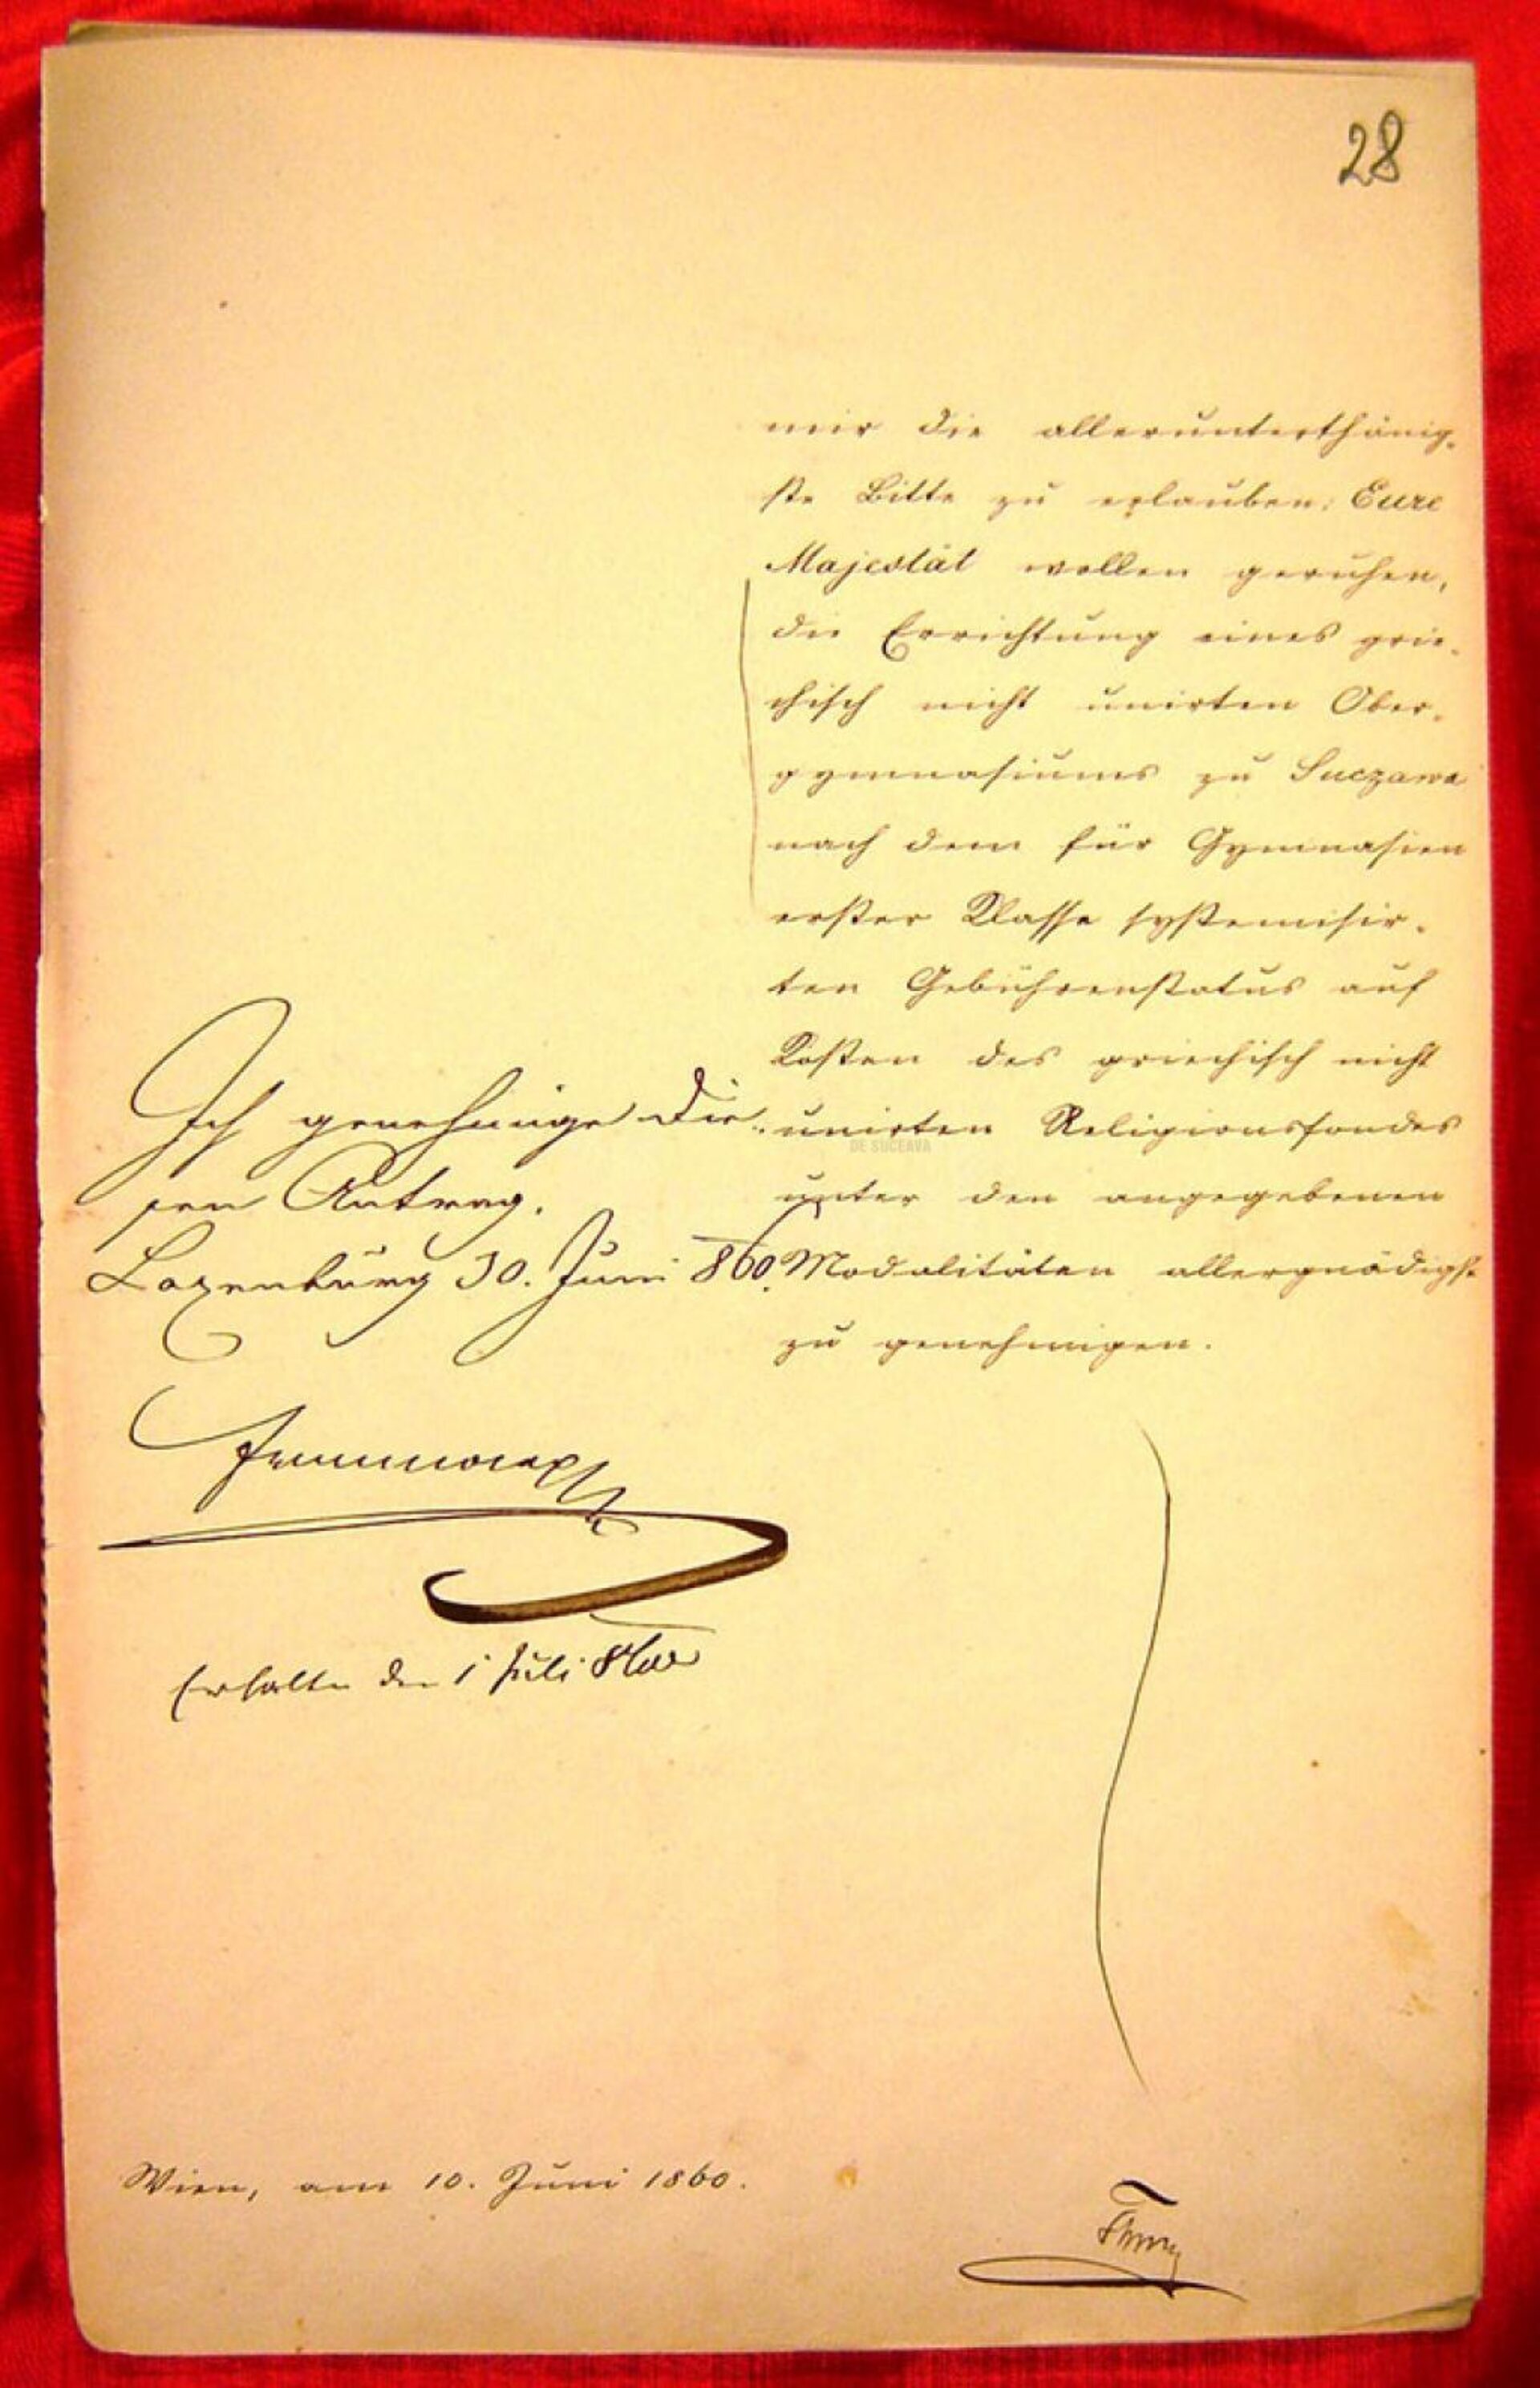 28
mir die allerunterthänig-
ste Bitte zu erlauben: Eure
Majestät wollen geruhen,
die Errichtung eines grie-
chisch nicht unirten Ober-
gymnasiums zu Suczawa
nach dem für Gymnasien
erster Klasse systemisir-
ten Gebührenstatus auf
Kosten des griechisch nicht
unirten Religionsfondes
unter den angegebenen
Modalitäten allergnädigst
zu genehmigen.
Ich genehmige die-
sen Antrag.
Laxenburg 30. Juni 860.
Franz Joseph
Erhalten den 1 Juli 860
Wien, am 10. Juni 1860.
Thun
DE SUCEAVA